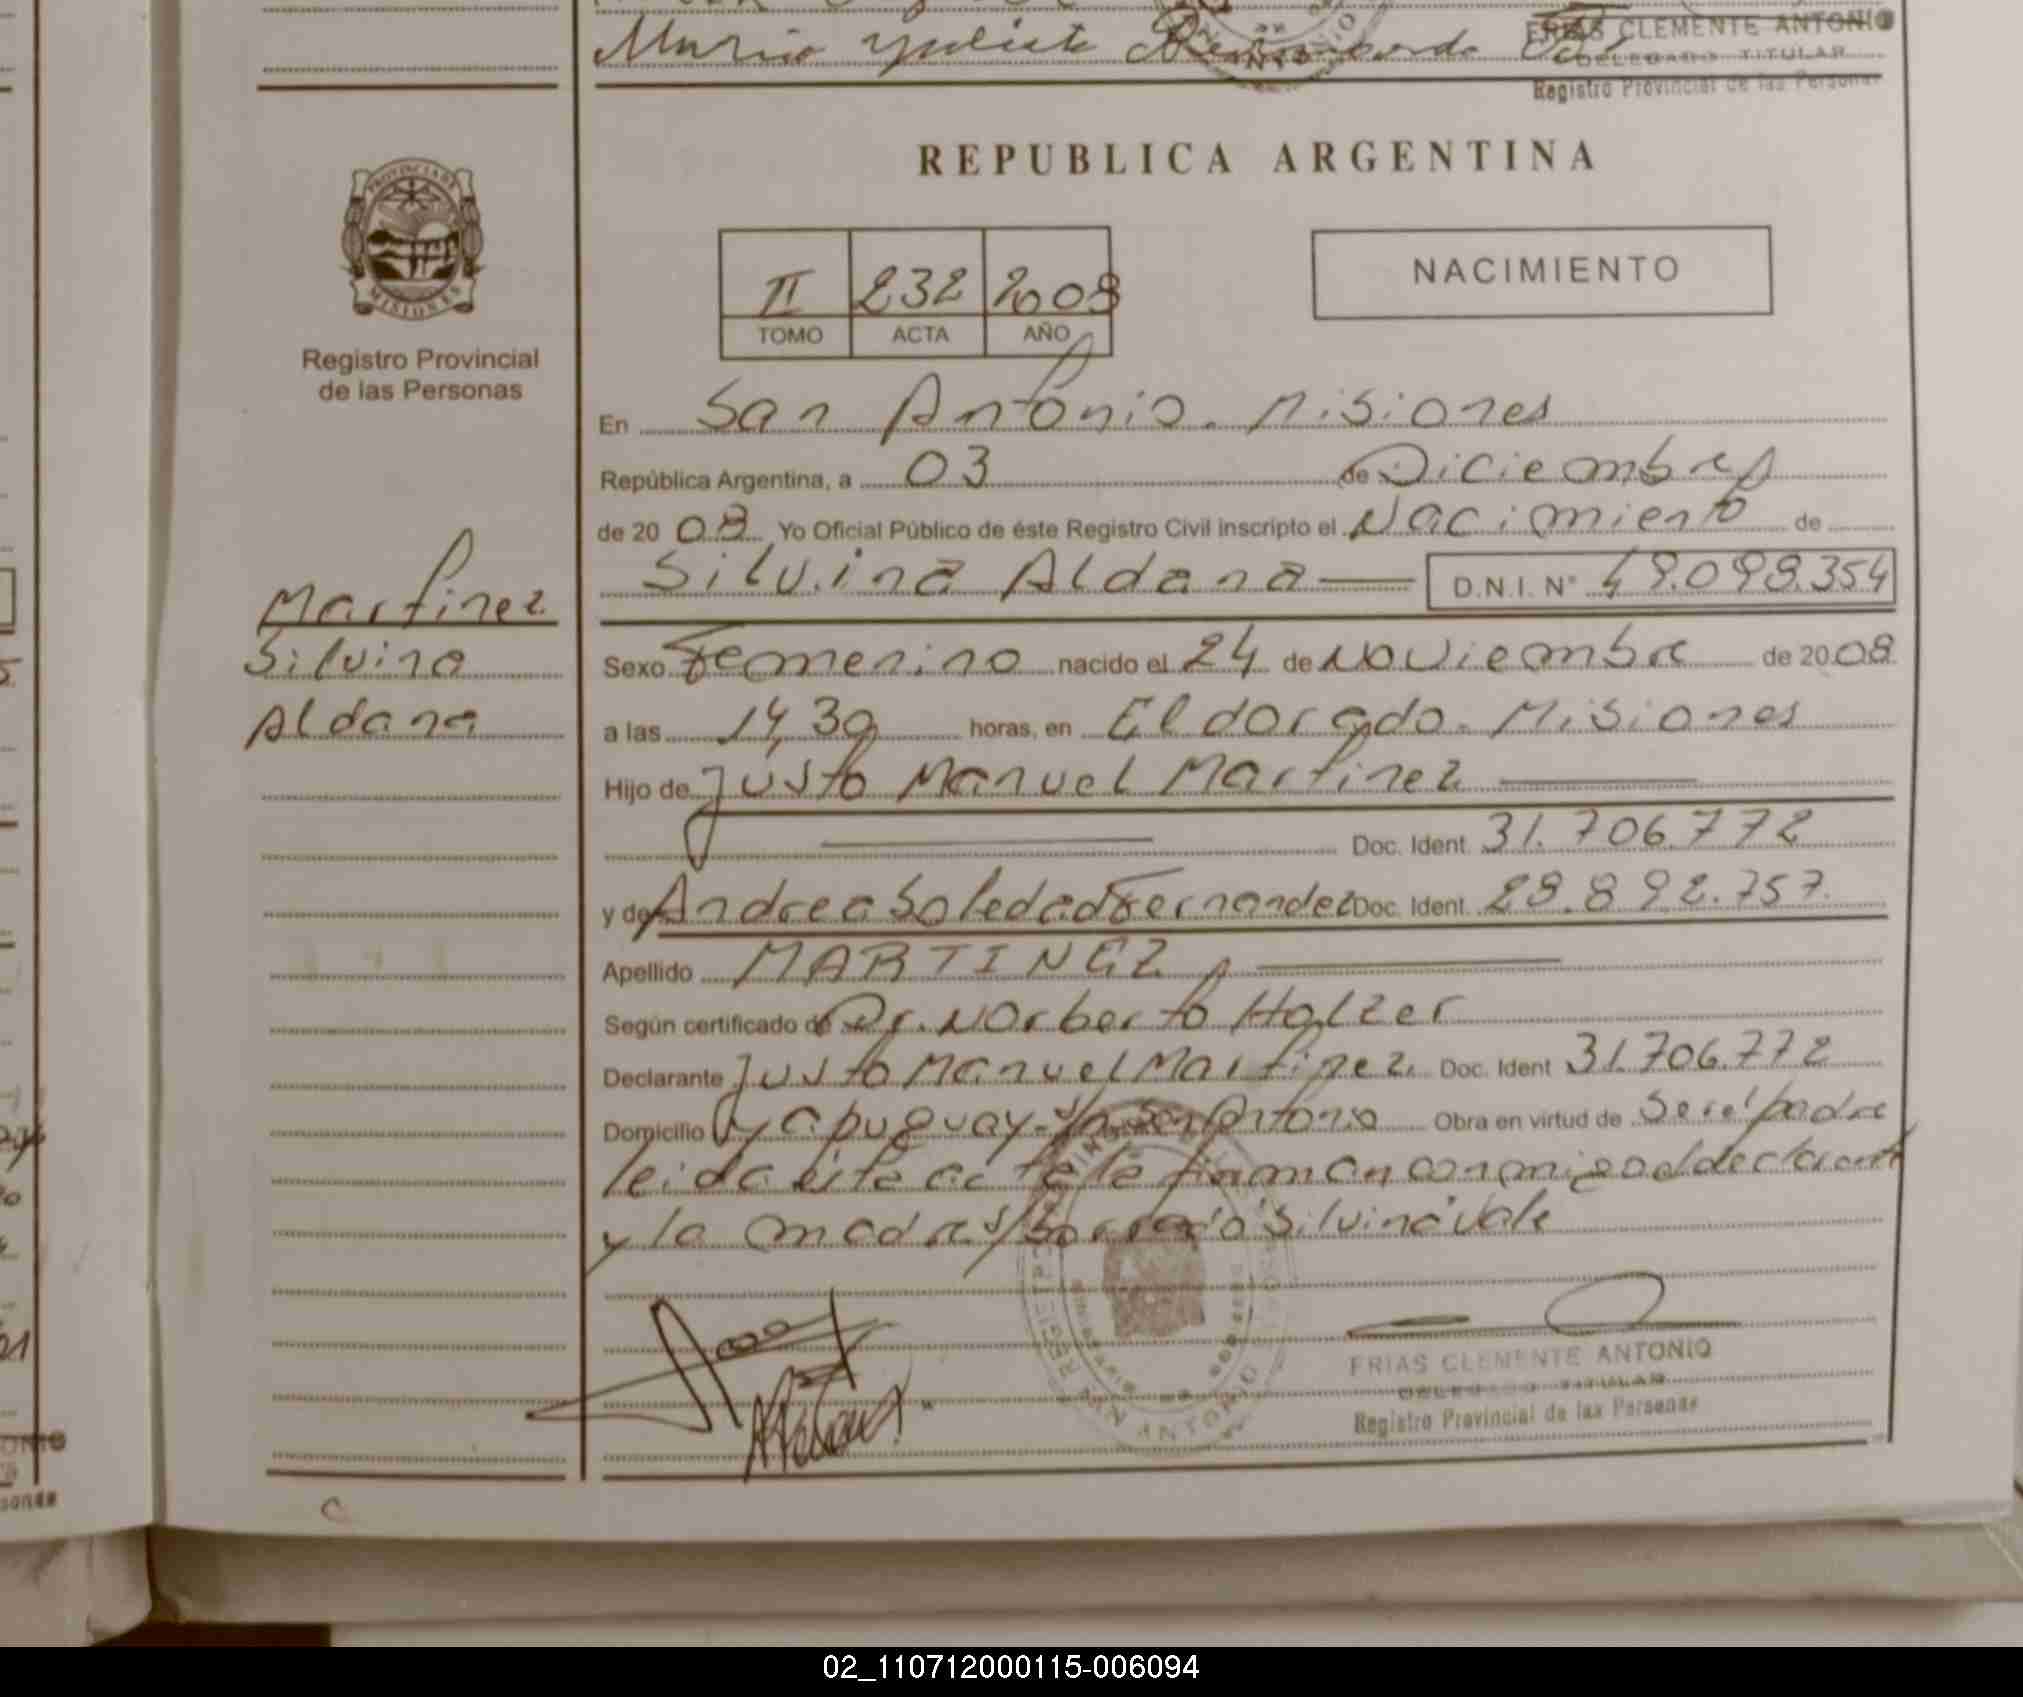 FRIAS CLEMENTE ANTONIO
DELEGADO TITULAR
Registro Provincial de las Personas
REPUBLICA ARGENTINA
PROVINCIA DE
MISIONES
Registro Provincial
de las Personas
II 232 2008
TOMO ACTA AÑO
NACIMIENTO
En San Antonio. Misiones
República Argentina, a 03 de Diciembre
de 20 08 Yo Oficial Público de éste Registro Civil inscripto el Nacimiento de
Silvina Aldana D.N.I. N° 49.098.354
Martinez
Silvina
Aldana
Sexo Femenino nacido el 24 de Noviembre de 20 08
a las 14,30 horas, en Eldorado. Misiones
Hijo de Justo Manuel Martinez
Doc. Ident. 31.706.772
y de Andrea Soledad Fernandez Doc. Ident. 28.892.757.
Apellido MARTINEZ
Según certificado de Dr. Norberto Holzer
Declarante Justo Manuel Martinez Doc. Ident 31.706.772
Domicilio Yapuguay-S/n San Antonio Obra en virtud de Ser el padre
leida este acta la firman conmigo el declarante
y la madre s/borrado "Silvina" vale
SAN ANTONIO
FRIAS CLEMENTE ANTONIO
DELEGADO TITULAR
Registro Provincial de las Personas
02_110712000115-006094